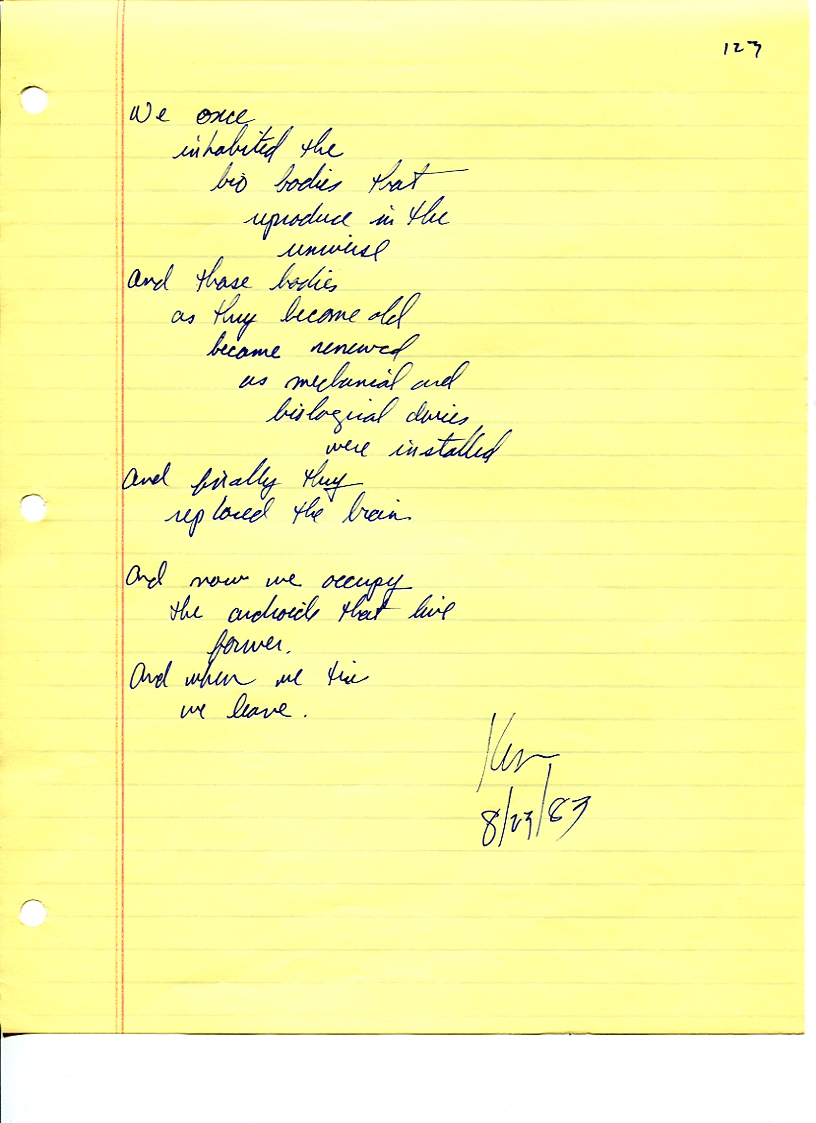 123
We once
inhabited the
bio bodies that
reproduce in the
universe
And those bodies
as they become old
became renewed
as mechanial and
biological
were installed
And finally they
replaced the brain
And now we occupy
the androids that live
forever.
And when we tire
we leave.
Ken
8/23/83